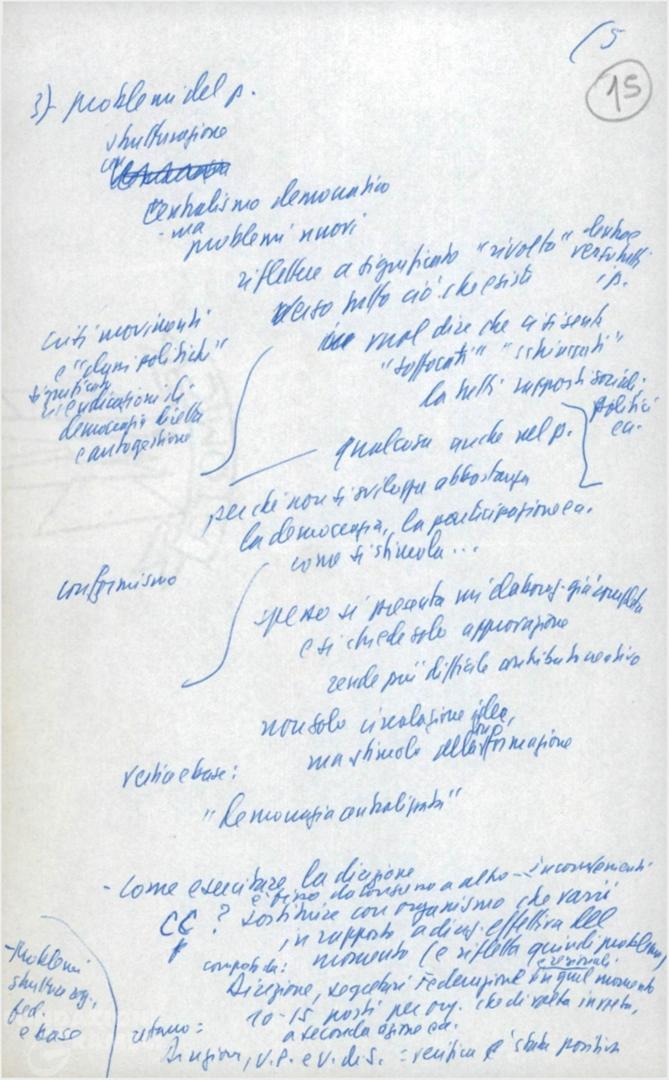 (5
15
3) - problemi del p.
strutturazione
centralismo democratico
- ma
problemi nuovi
riflettere a significato "rivolta"
verso tutto ciò che esiste
vuol dire che ci si sente
"soffocati" "schiacciati"
da tutti rapporti sociali
politici
ecc.
certi movimenti
e "
significano
rivendicazioni di
democrazia diretta
e autogestione
qualcosa anche nel p.
perché non si sviluppa abbastanza
la democrazia, la partecipazione ecc.
come si stimola ...
conformismo
spesso si presenta un'elaboraz. già completa
e si chiede solo approvazione
rende più difficile contributo creativo
non solo circolazione idee,
ma stimolo alla formazione
vertice e base:
"Democrazia centralizzata"
- Come esercitare la direzione
inconvenienti
CC? sostituire con organismo che varii
in rapporto a direz. effettiva del
momento (e rifletta quindi problemi
e regionali
composta da:
Direzione, segretari Federazione in quel momento
10-15 posti per org. che di volta in volta,
a seconda ecc.
- Problemi
struttura org.
fed.
e base
Direzione, U.P. e U. di S. = verifica è stata positiva